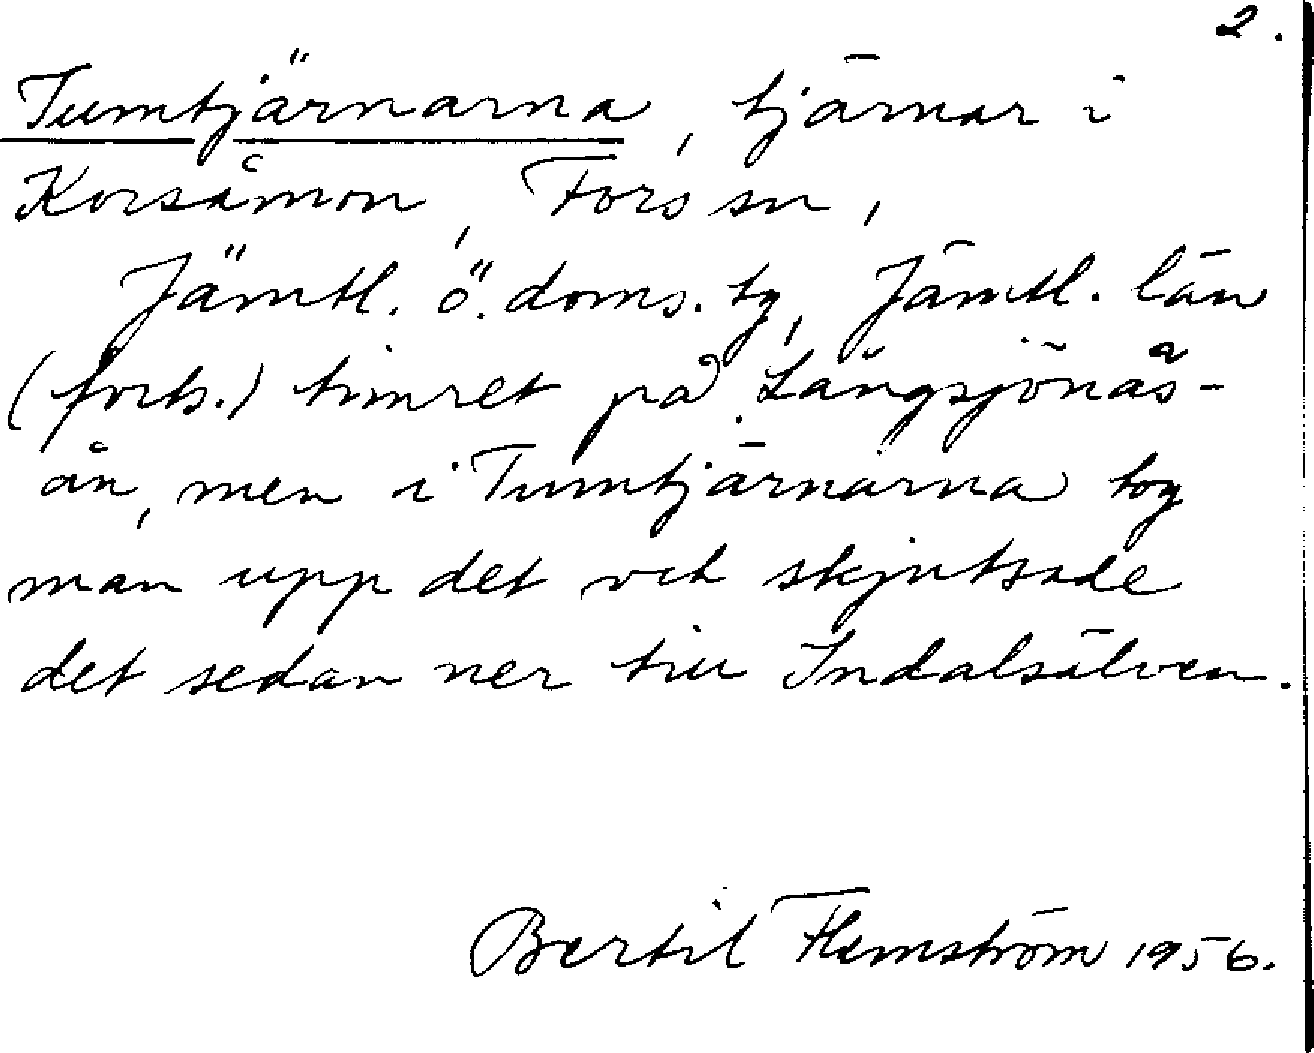 2.
Tumtjärnarna, tjärnar i
Korsåmon, Fors sn,
Jämtl. ö. doms. tg, Jämtl. län
(forts.) timret på Långsjönäs-
ån, men i Tumtjärnarna tog
man upp det och skjutsade
det sedan ner till Indalsälven.
Bertil Flemström 1956.